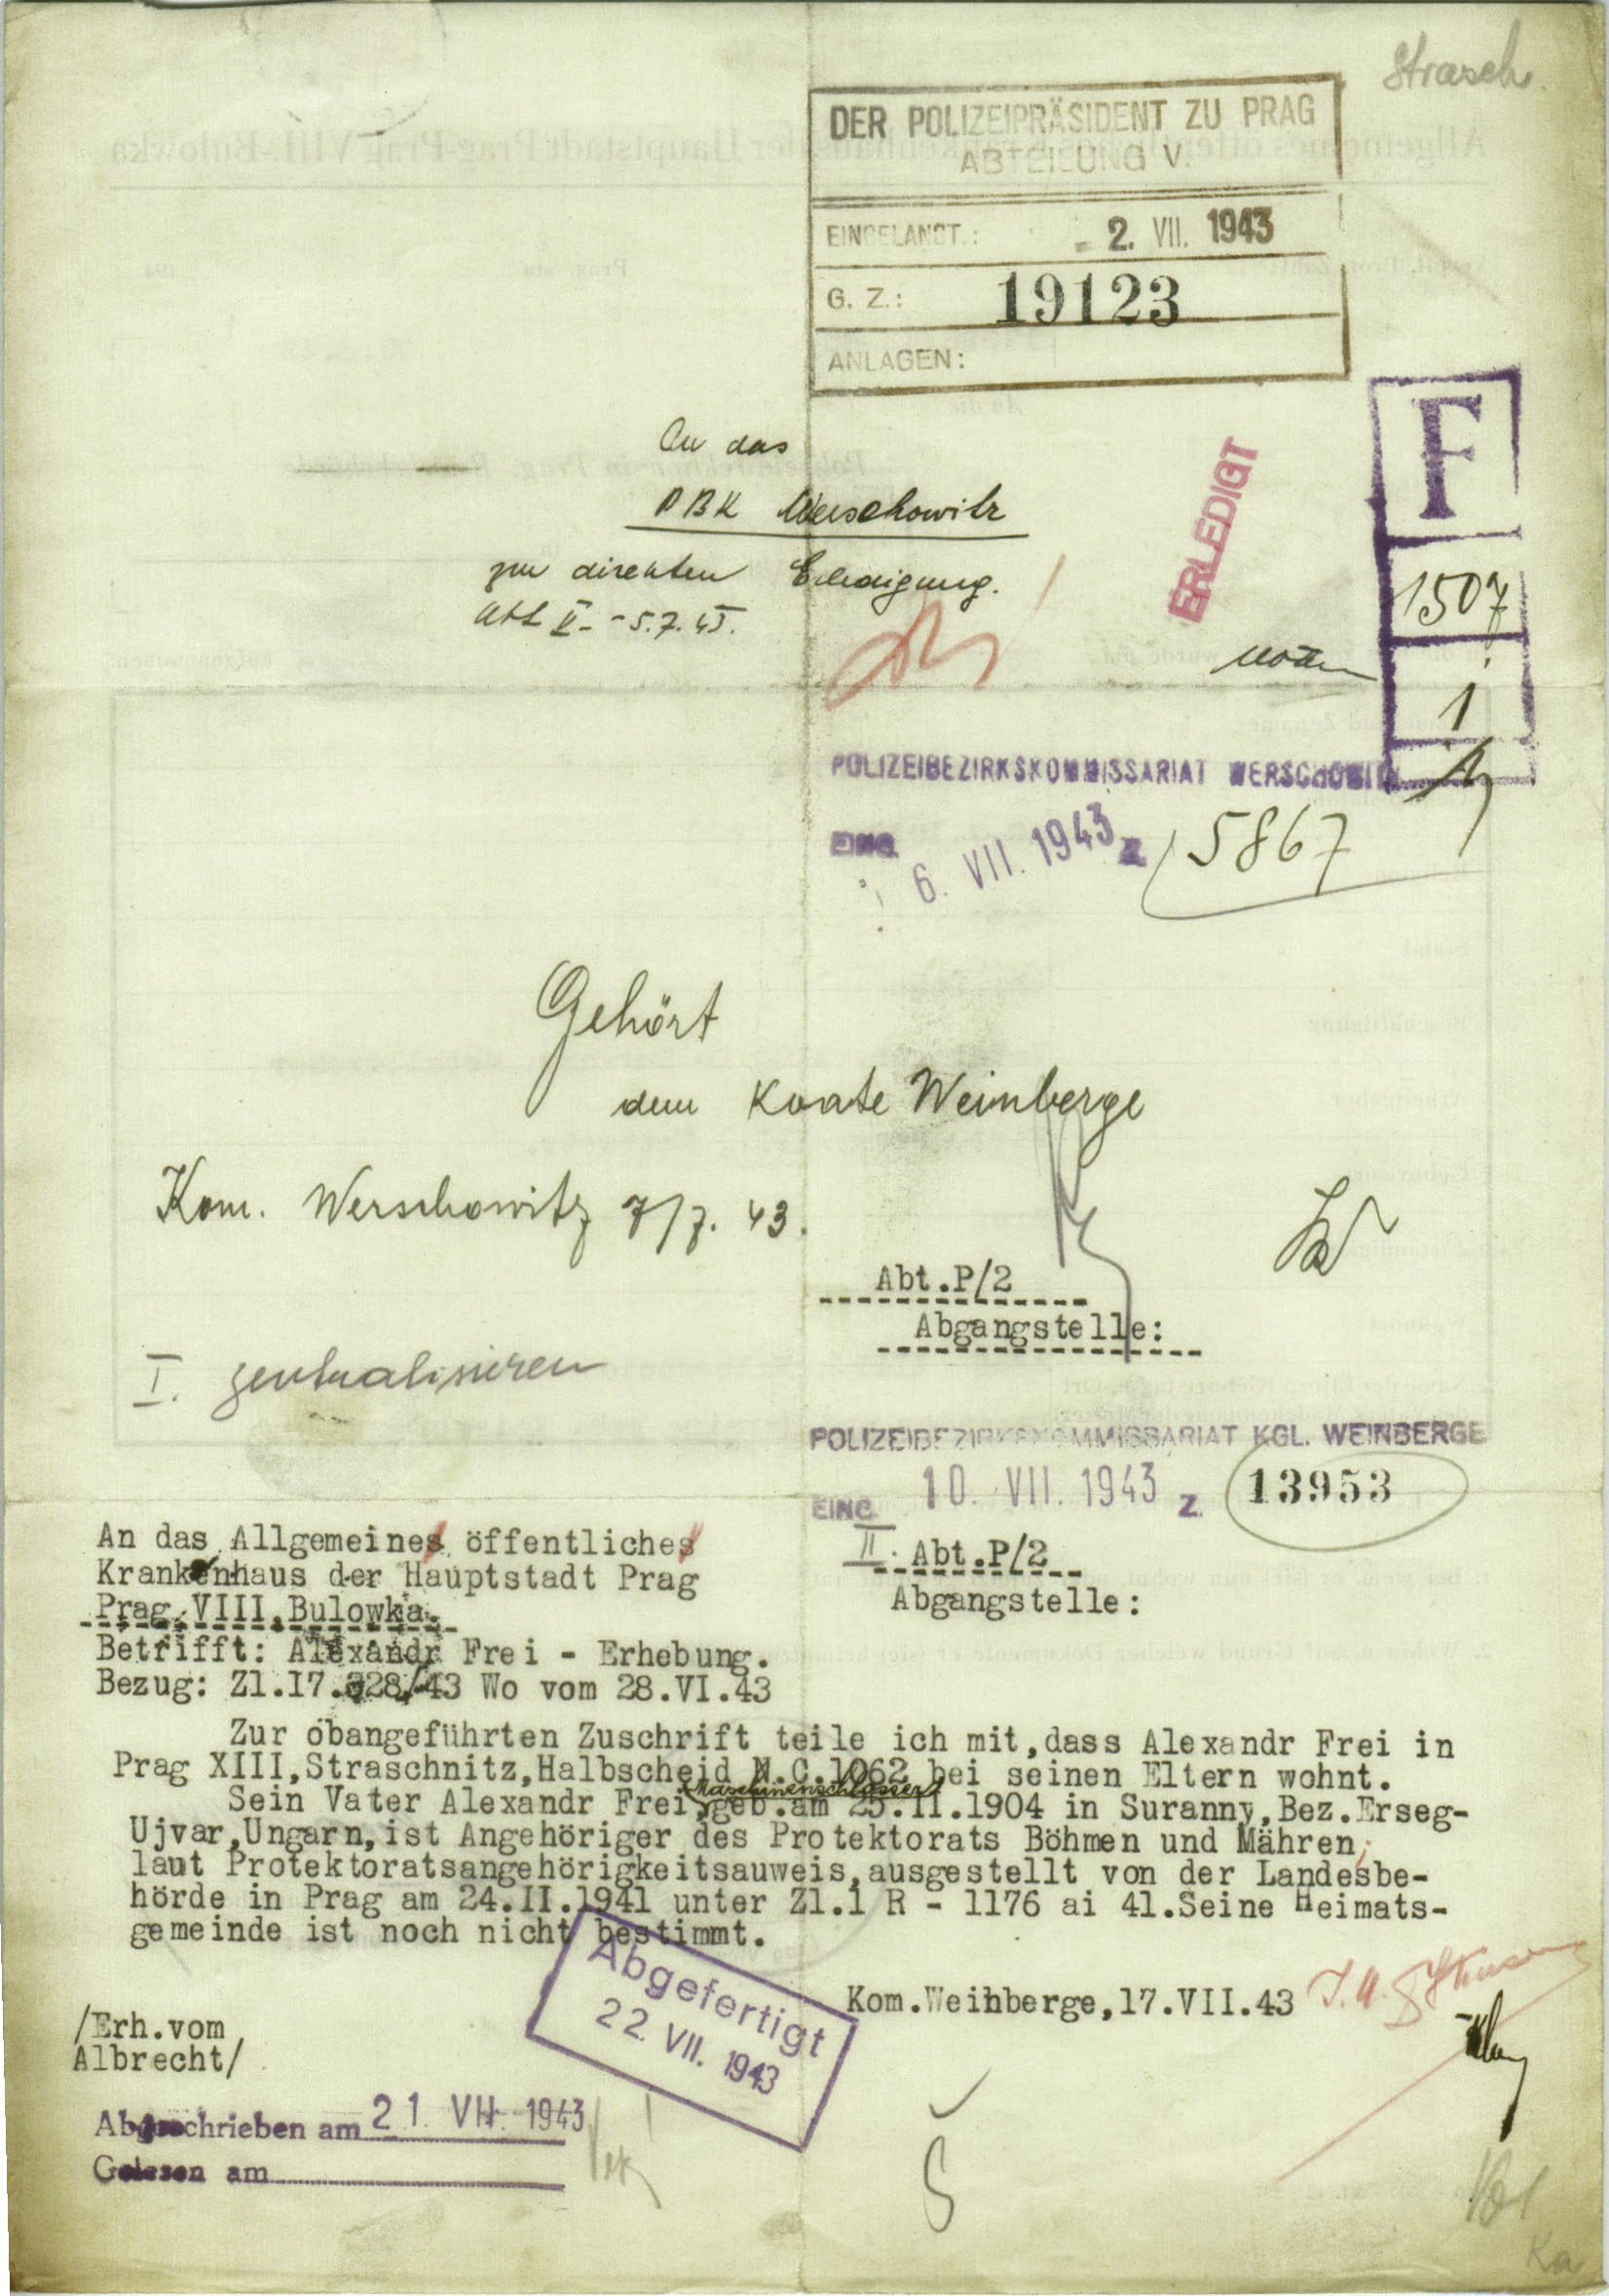 Strasch.
DER POLIZEIPRÄSIDENT ZU PRAG
ABTEILUNG V.
EINGELANGT.: - 2. VII. 1943
G. Z.: 19123
ANLAGEN:
F
1507
1
An das
PBK Werschowitz
zur direkten Erledigung.
Abt V - 5.7.43.
ERLEDIGT
POLIZEIBEZIRKSKOMMISSARIAT WERSCHOWITZ
EING. 6. VII. 1943 Z 5867
Gehört
dem Koate Weinberge
Kom. Werschowitz 7/7. 43.
Abt.P/2
Abgangstelle:
I. zentralisieren
POLIZEIBEZIRKSKOMMISSARIAT KGL. WEINBERGE
EING. 10. VII. 1943 Z. 13953
II. Abt.P/2
Abgangstelle:
An das Allgemeines öffentliches
Krankenhaus der Hauptstadt Prag
Prag VIII,Bulowka.
Betrifft: Alexandr Frei - Erhebung.
Bezug: Zl.17.328/43 Wo vom 28.VI.43
Zur obangeführten Zuschrift teile ich mit,dass Alexandr Frei in
Prag XIII,Straschnitz,Halbscheid N.C.1062 bei seinen Eltern wohnt.
Maschinenschlosser
Sein Vater Alexandr Frei,geb.am 25.II.1904 in Suranny,Bez.Erseg-
Ujvar,Ungarn,ist Angehöriger des Protektorats Böhmen und Mähren,
laut Protektoratsangehörigkeitsauweis,ausgestellt von der Landesbe-
hörde in Prag am 24.II.1941 unter Zl.1 R - 1176 ai 41.Seine Heimats-
gemeinde ist noch nicht bestimmt.
Abgefertigt
22. VII. 1943
Kom.Weinberge,17.VII.43
/Erh.vom
Albrecht/
Abgeschrieben am 21. VII. 1943
Gelesen am
Š